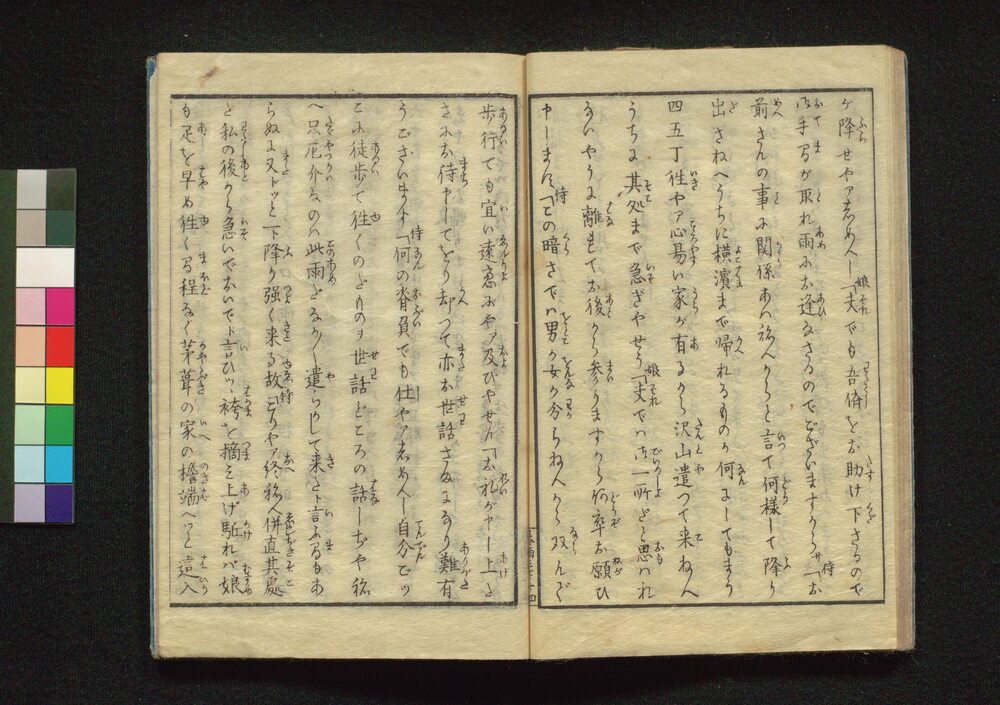 が降せやア志めへし「娘夫でも吾儕をお助け下さるので
お手間が取れ雨にお逢なさるのでございますから「侍サお
前さんの事に関係あはねへからと言て何様して降り
出さねへうちに横濱まで帰れるものか何にしてもまう
四五丁徃やア心易い家が有るから沢山遣つて来ねへ
うちに其処まで急ぎやせう「娘夫では御一所と思はれ
ないやうに離れてお後から参りますから何卒お願ひ
申しまス「侍この暗さでは男か女か分らねへから双んで
歩行ても宜い遠慮にやア及びやせん「お礼が申し上と
さにお待申してをり却つて亦お世話さまになり難有
うございます「侍何の脊負でも仕やア志めへし自分でツ
こに徒歩て徃くのだものヲ世話どころの話しぢや祢
へ只厄介なのは此雨だなるたく遣らして来さト言ふるもあ
らぬに又ドツと下降り強く来る故「侍こりやア終祢へ併直其處
だ私の後から急いでおいでト言ひツヽ袴を摘み上げ駈れバ娘
も足を早め徃くる程なく茅葺の家の檐端へツと這入